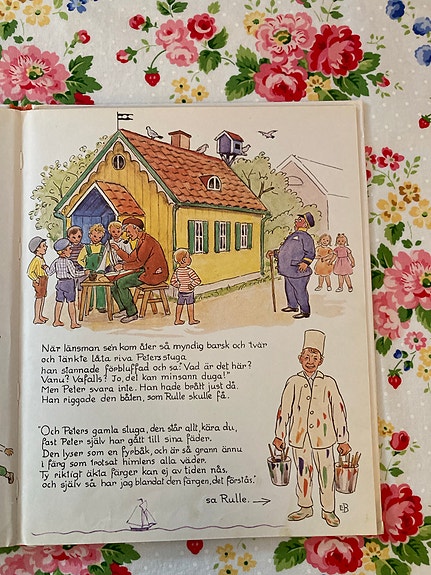 När länsman se'n kom åter så myndig barsk och tvär
och tänkte låta riva Peters stuga
han stannade förbluffad och sa: "Vad är det här?
Vanu? Vafalls? Jo, det kan minsann duga!"
Men Peter svara inte. Han hade brått just då.
Han riggade den båten, som Rulle skulle få.
"Och Peters gamla stuga, den står allt kvar, du,
fast Peter själv har gått till sina fäder.
Den lyser som en fyrbåk, och är så grann ännu
i färg som trotsat himlens alla väder.
Ty riktigt äkta färger kan ej av tiden nås,
och själv så har jag blandat den färgen, det förstås."
sa Rulle. →
EB